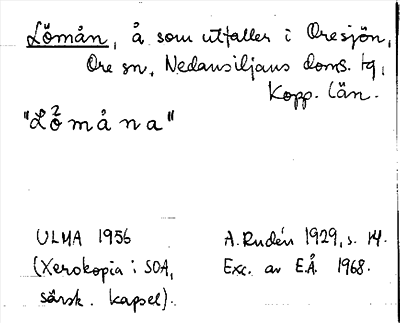 Lömån, å som utfaller i Oresjön,
Ore sn, Nedansiljans doms. tg,
Kopp. län.
"Lö²måna"
ULMA 1956
(Xerokopia i SOA,
särsk. kapsel).
A. Rudén 1929, s. 14.
Exc. av E.Å. 1968.